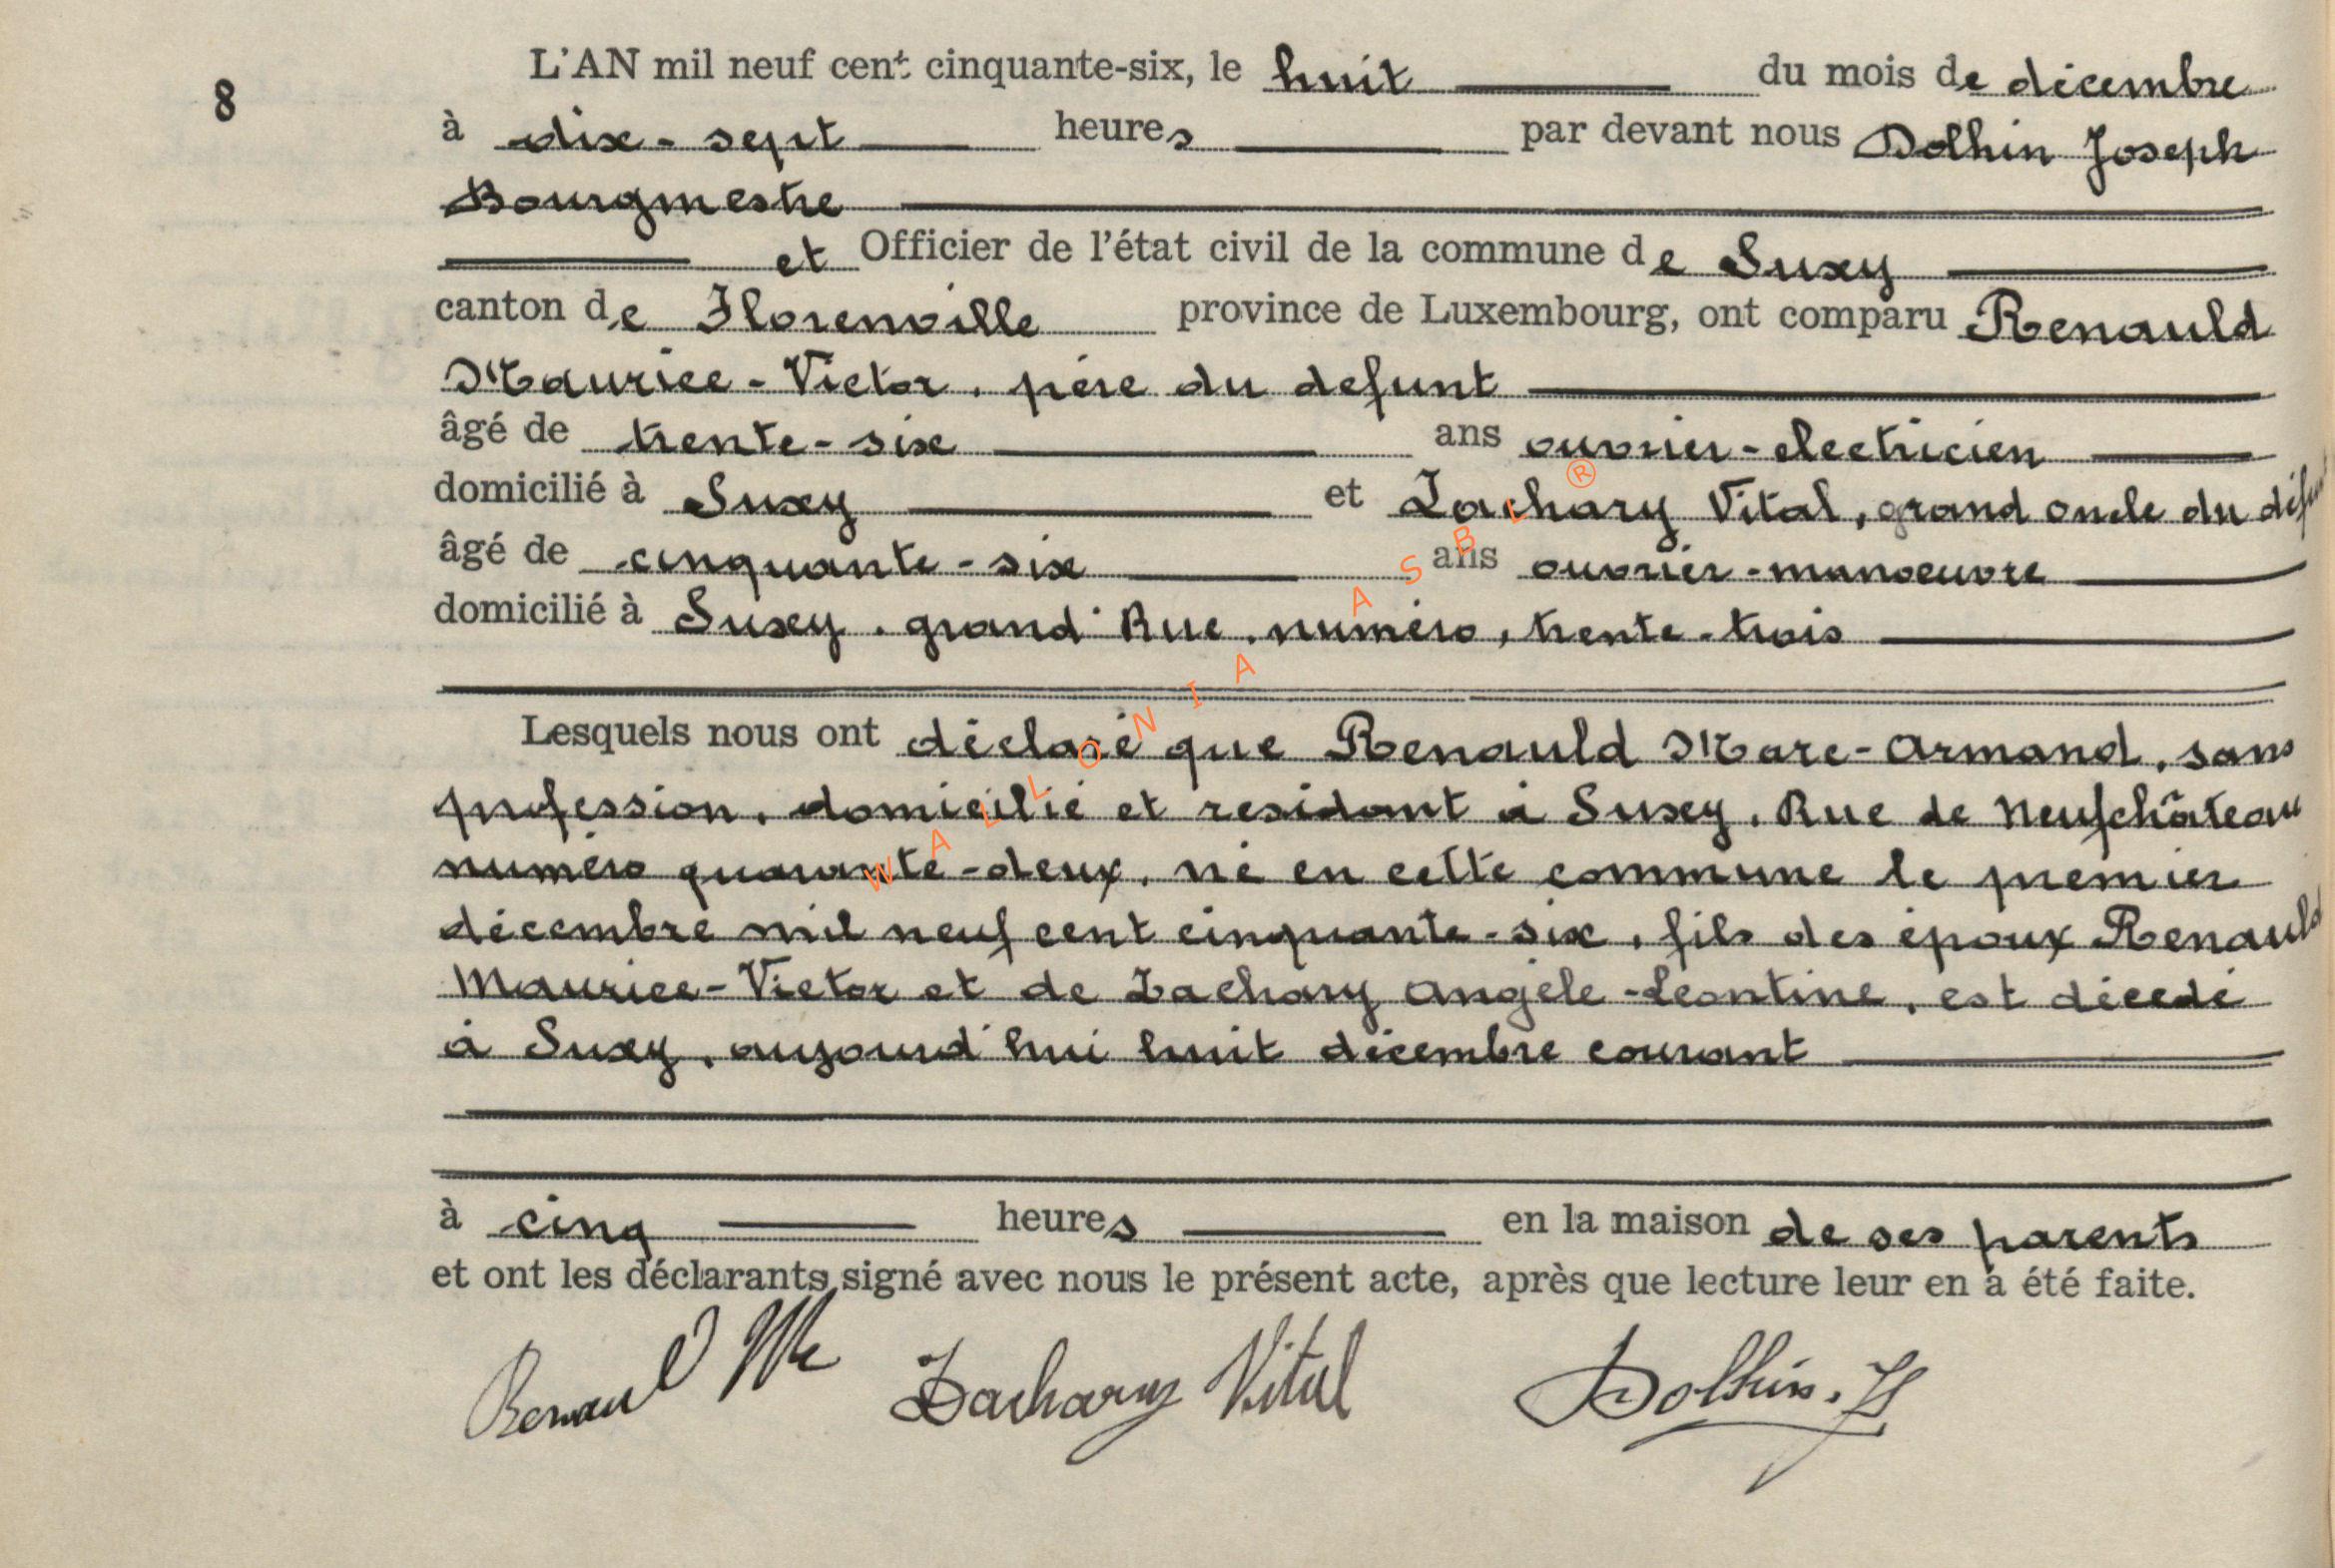 8
L'AN mil neuf cent cinquante-six, le huit du mois de décembre
à dix-sept heures par devant nous Dolhin Joseph
Bourgmestre
et Officier de l'état civil de la commune de Suxy
canton de Florenville province de Luxembourg, ont comparu Renauld
Maurice-Victor, père du defunt
âgé de trente-six ans ouvrier-electricien
domicilié à Suxy et Zachary Vital, grand oncle du défunt
âgé de cinquante-six ans ouvrier-manoeuvre
domicilié à Suxey, grand'Rue, numéro, trente-trois
Lesquels nous ont déclaré que Renauld Marc-Armand, sans
profession, domicilié et residant à Suxey, Rue de Neufchâteau
numéro quarante-deux, né en cette commune le premier
décembre mil neuf cent cinquante-six, fils des époux Renauld
Maurice-Victor et de Zachary Angèle-Leontine, est décedé
à Suxy, aujourd'hui huit décembre courant
à cinq heures en la maison de ses parents
et ont les déclarants signé avec nous le présent acte, après que lecture leur en a été faite.
Renauld Zachary Vital Dolhin. J
WALLONIA ASBL ®